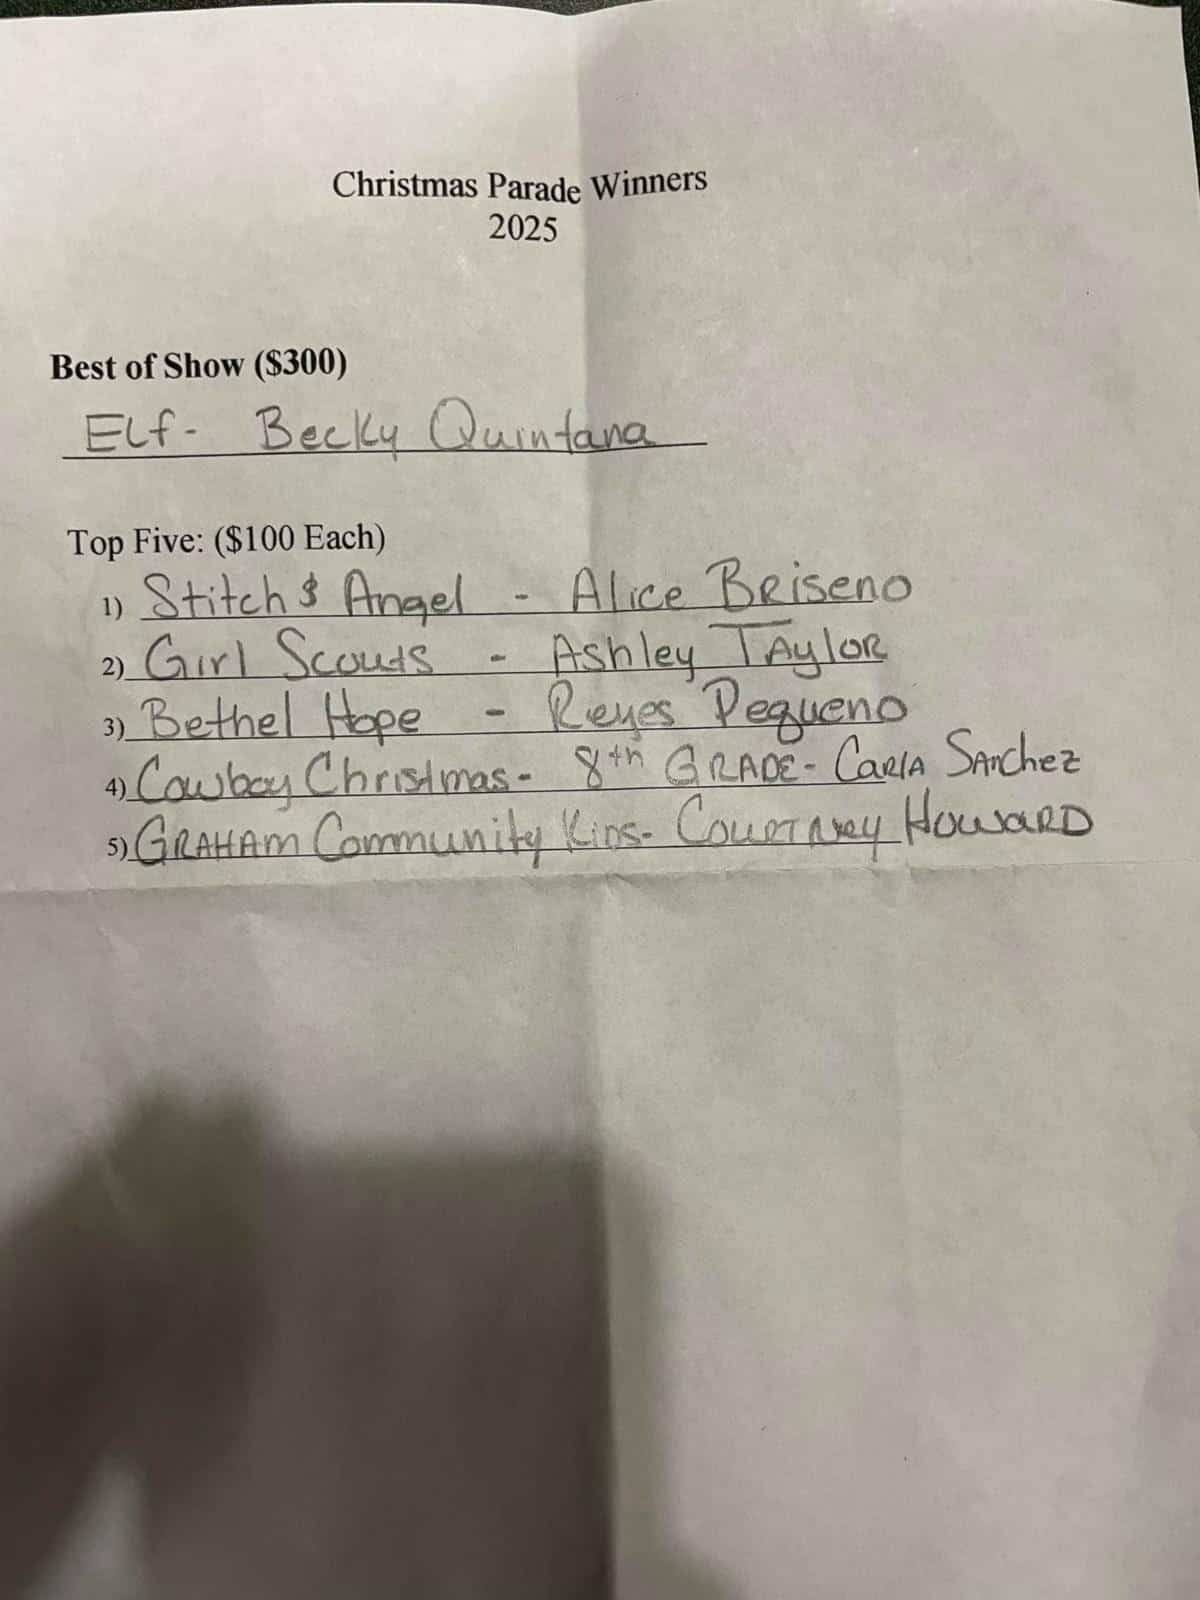 Christmas Parade Winners
2025
Best of Show ($300)
Elf- Becky Quintana
Top Five: ($100 Each)
1) Stitch & Angel - Alice Briseno
2) Girl Scouts - Ashley Taylor
3) Bethel Hope - Reyes Pequeno
4) Cowboy Christmas- 8th GRADE- Carla Sanchez
5) GRAHAM Community Kids- Courtney Howard